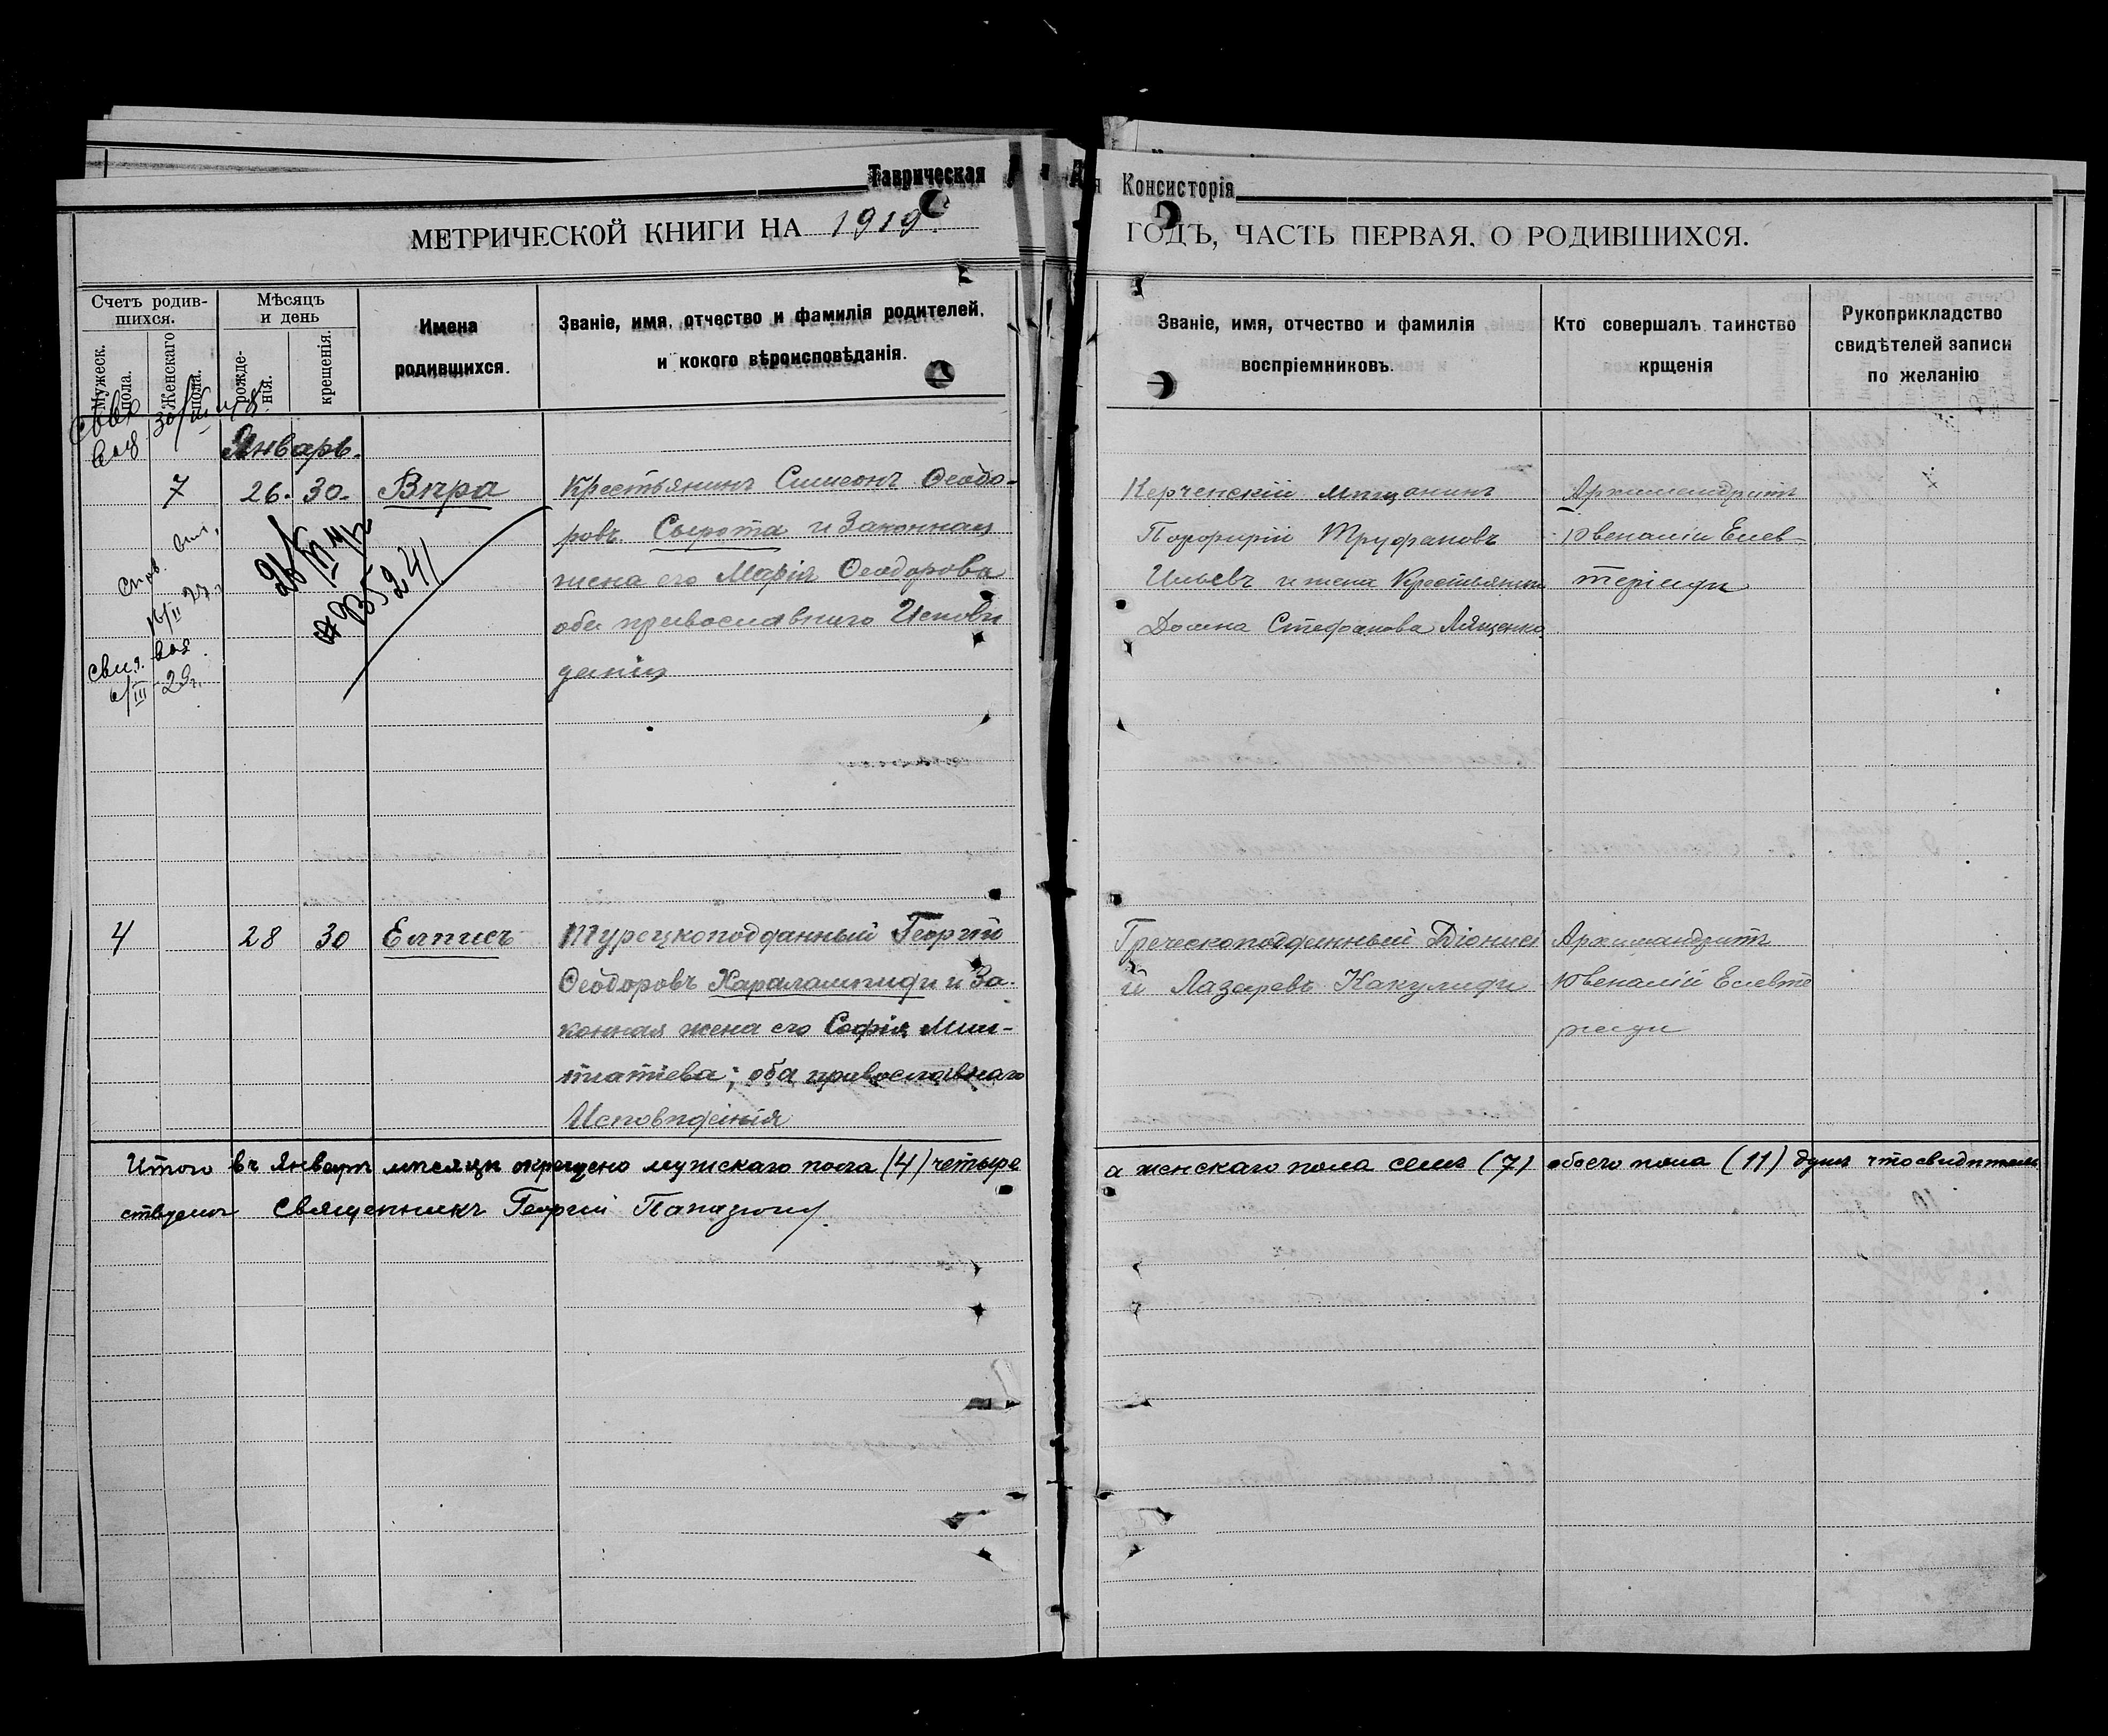 Таврическая
Консисторія
МЕТРИЧЕСКОЙ КНИГИ НА 1919.
ГОДЪ, ЧАСТЬ ПЕРВАЯ, О РОДИВШИХСЯ.
Счетъ родив-
шихся.
Мужеск.
пола.
Женскаго
пола.
Мѣсяцъ
и день
рожде-
нія.
крещенія.
Имена
родившихся.
Званіе, имя, отчество и фамилія родителей,
и кокого вѣроисповѣданія.
Званіе, имя, отчество и фамилія
воспріемниковъ.
Кто совершалъ таинство
крщенія
Рукоприкладство
свидѣтелей записи
по желанію
Январь.
7
26. 30.
Вѣра
Крестьянинъ Симеонъ Ѳеодо-
ровъ Сырота и Законная
жена его Марія Ѳеодорова
оба православнаго Исповѣ
данія
Керченскій мѣщанинъ
Порфирій Труфановъ
Ильевъ и жена Крестьянин
Домна Стефанова Лященко
Архимандритъ
Ювеналій Елев-
теріади
16/II 27 г.
6/III-29 г.
4
28 30
Елписъ
Турецкоподданный Георгій
Ѳеодоровъ Харалампиди и За-
конная жена его Софія Мил-
тіатіева; оба православнаго
Исповѣденія
Греческоподданный Діонисі
й Лазаревъ Какулиди
Архимандритъ
Ювеналій Елевте
ріади
Итого въ Январѣ мѣсяцѣ окрещено мужскаго пола (4) четыре
а женскаго пола семь (7) обоего пола (11) душъ что свидѣтель
ствуемъ Священникъ Георгій